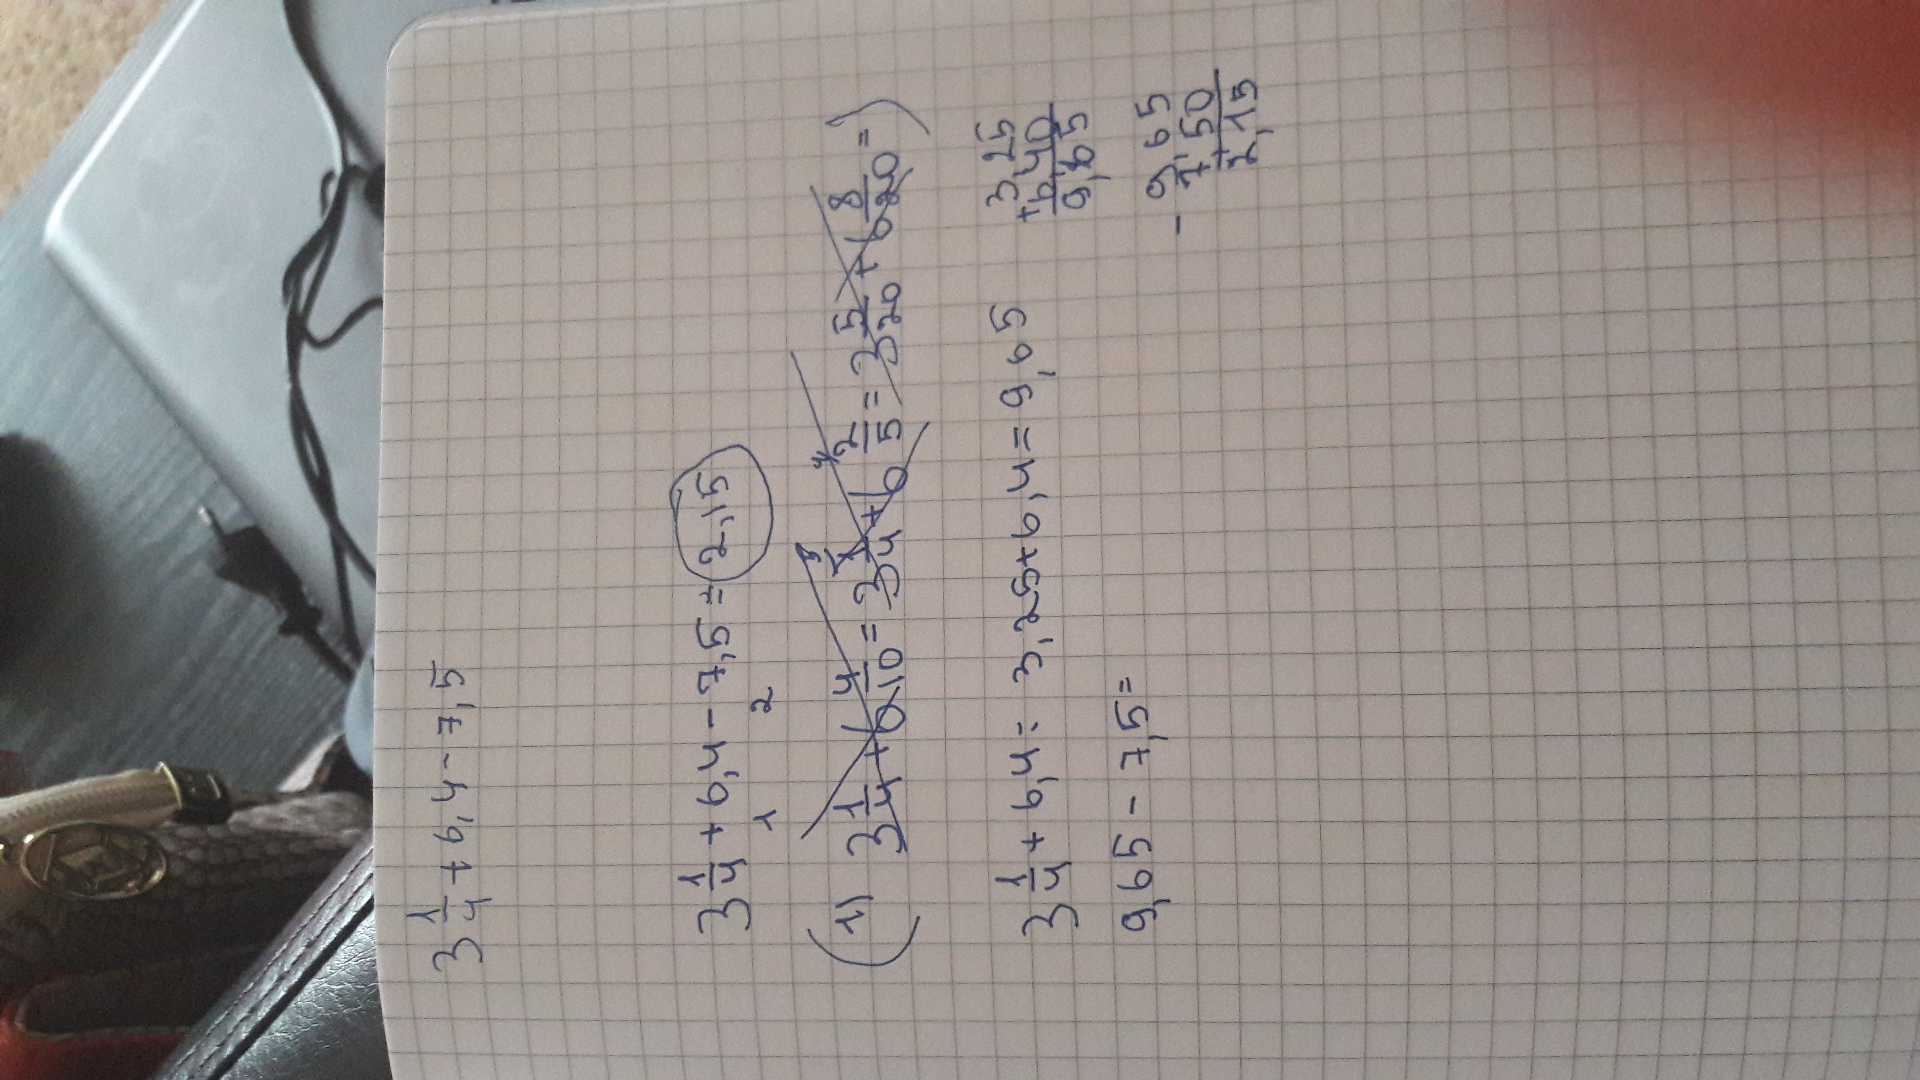 3 1/4 + 6,4 - 7,5
3 1/4 + 6,4 - 7,5 = 2,15
1 2
(1) 3 1/4 + 6 4/10 = 3 1/4 + 6 2/5 = 3 5/20 + 6 8/20 = )
3 1/4 + 6,4 = 3,25 + 6,4 = 9,65
3,25
+6,40
9,65
9,65 - 7,5 =
- 9,65
7,50
2,15